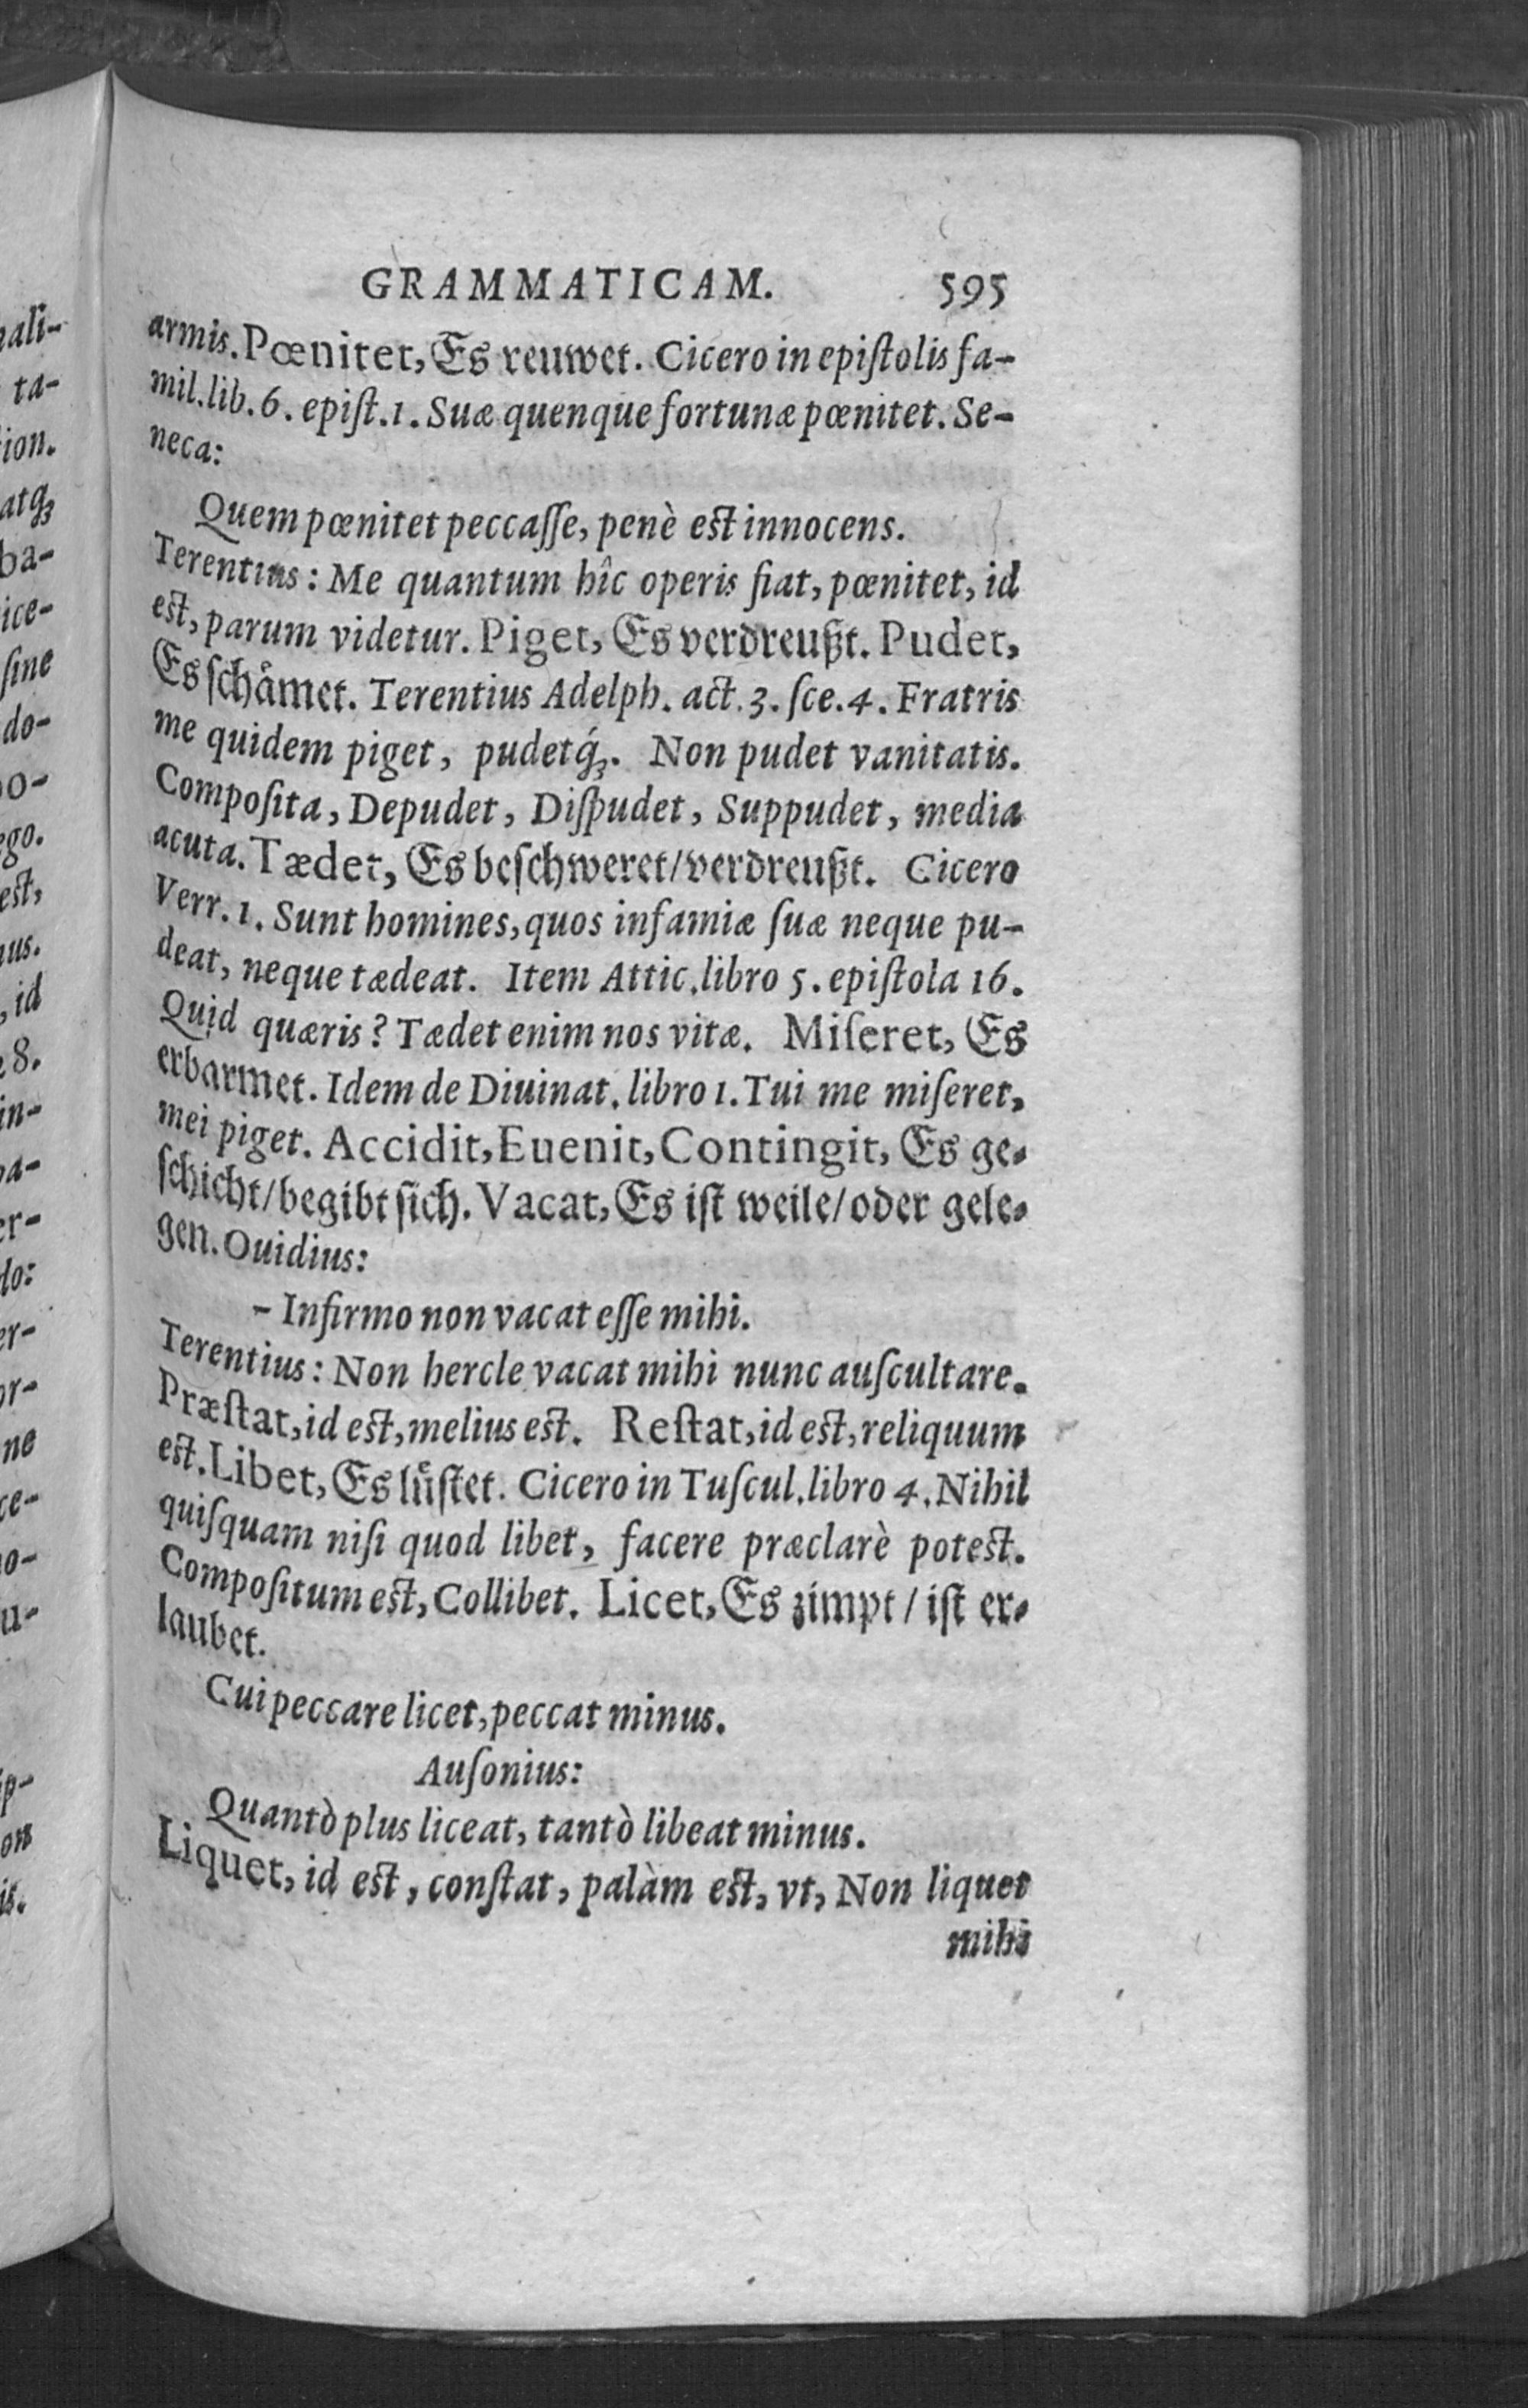 GRAMMATICAM. 595
armis. Pœnitet, Es reuwet. Cicero in epiſtolis fa-
mil. lib. 6. epiſt. 1. Suæ quenque fortunæ pœnitet. Se-
neca:
Quem pœnitet peccaſſe, penè est innocens.
Terentius: Me quantum hîc operis fiat, pœnitet, id
est, parum videtur. Piget, Es verdreußt. Pudet,
Es ſchaͤmet. Terentius Adelph. act. 3. ſce. 4. Fratris
me quidem piget, pudetq́ꝫ. Non pudet vanitatis.
Compoſita, Depudet, Diſpudet, Suppudet, media
acuta. Tædet, Es beſchweret/verdreußt. Cicero
Verr. 1. Sunt homines, quos infamiæ ſuæ neque pu-
deat, neque tædeat. Item Attic. libro 5. epiſtola 16.
Quid quæris? Tædet enim nos vitæ. Miſeret, Es
erbarmet. Idem de Diuinat. libro 1. Tui me miſeret,
mei piget. Accidit, Euenit, Contingit, Es ge-
ſchicht/begibt ſich. Vacat, Es iſt weile/oder gele-
gen. Ouidius:
- Infirmo non vacat eſſe mihi.
Terentius: Non hercle vacat mihi nunc auſcultare.
Præſtat, id est, melius est. Reſtat, id est, reliquum
est. Libet, Es luͤſtet. Cicero in Tuſcul. libro 4. Nihil
quiſquam niſi quod libet, facere præclarè potest.
Compoſitum est, Collibet. Licet, Es zimpt / iſt er-
laubet.
Cui peccare licet, peccat minus.
Auſonius:
Quantò plus liceat, tantò libeat minus.
Liquet, id est, conſtat, palàm est, vt, Non liquet
mihi